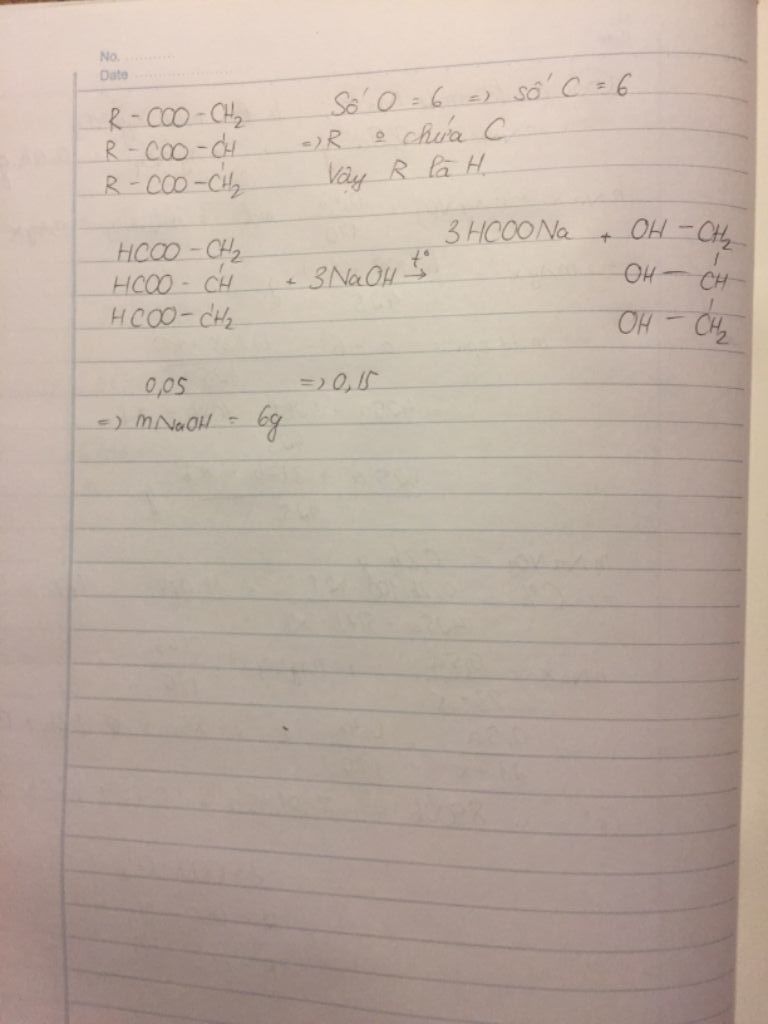 No. ..........
Date ..................
R - COO - CH2 Số O = 6 => số C = 6
R - COO - CH => R o chứa C
R - COO - CH2 Vậy R là H.
3HCOONa + OH - CH2
HCOO - CH2
HCOO - CH + 3NaOH t° → OH - CH
HCOO - CH2 OH - CH2
0,05 => 0,15
=> mNaOH = 6g